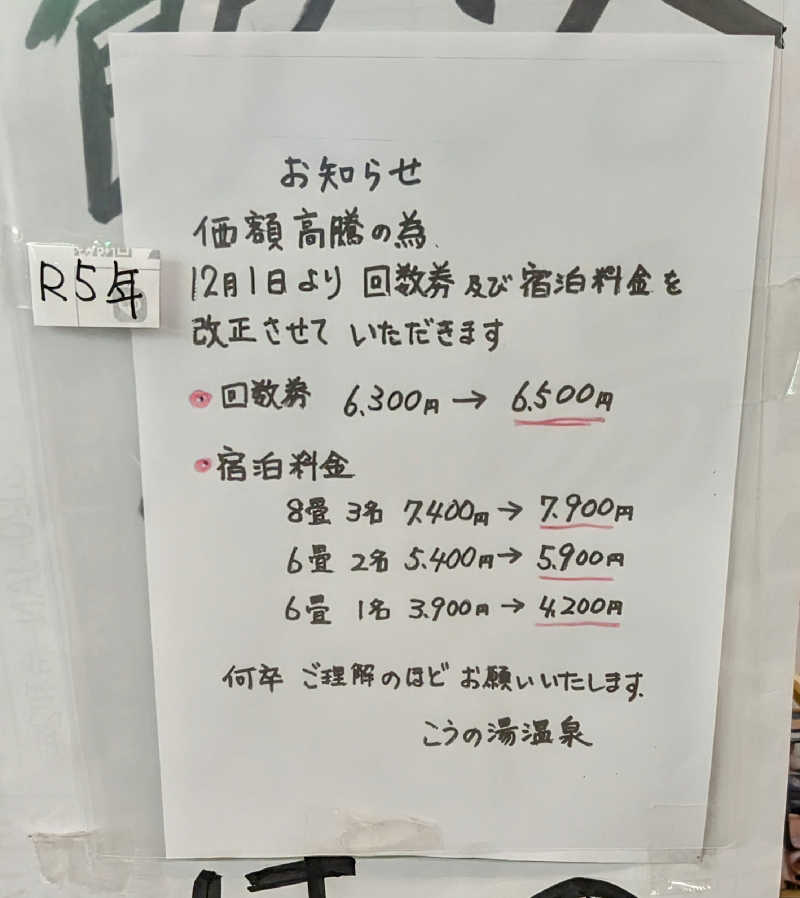 お知らせ
価額高騰の為、
R5年
12月1日より 回数券及び宿泊料金を
改正させて いただきます
回数券 6,300円→ 6,500円
宿泊料金
8畳 3名 7,400円→ 7,900円
6畳 2名 5,400円→ 5,900円
6畳 1名 3,900円→ 4,200円
何卒 ご理解のほど お願いいたします。
こうの湯温泉